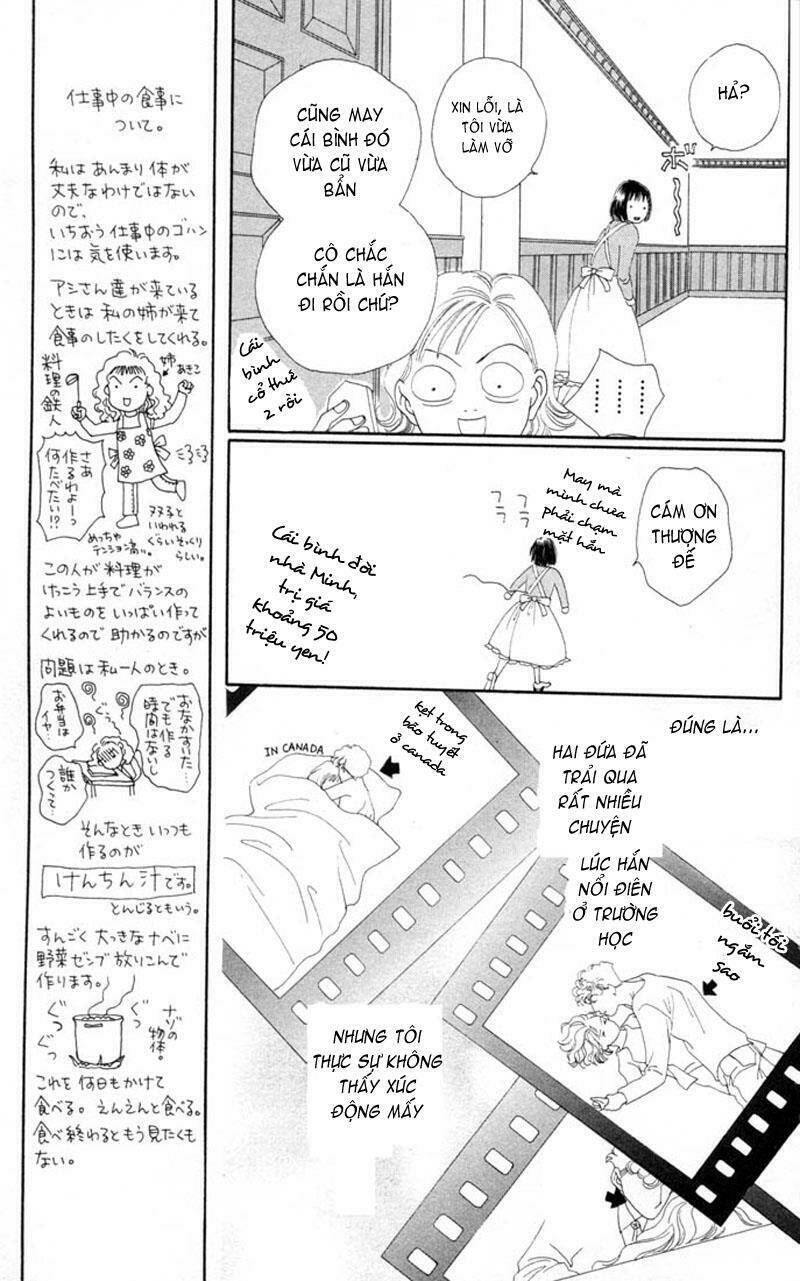 仕事中の食事に
ついて。
私は あんまり 体が
丈夫なわけではない
ので、
いちおう 仕事中のゴハン
には 気を使います。
アシさん達が来ている
ときは 私の姉が来て
食事のしたくをしてくれる。
料理の鉄人
姉
あきこ
さあ
作るわよーっ
何たべたい!?
めっちゃ
テンション高い。
双子と
いわれる
ぐらいそっくり
らしい。
この人が 料理が
けっこう上手で バランスの
よいものを いっぱい作って
くれるので 助かるのですが
問題は 私一人のとき。
おなかすいた…
でも作る
時間はないし
お弁当は
イヤ…
ぐぅ
誰か
つくって…
そんなとき いつも
作るのが
けんちん汁です。
とんじるともいう。
すんごく 大っきなナベに
野菜ゼンブ 放りこんで
作ります。
ぐつ
ぐつ
ナゾの
物体。
これを 何日もかけて
食べる。えんえんと食べる。
食べ終わるともう見たくも
ない。
HẢ?
XIN LỖI, LÀ
TÔI VỪA
LÀM VỠ
CŨNG MAY
CÁI BÌNH ĐÓ
VỪA CŨ VỪA
BẨN
CÔ CHẮC
CHẮN LÀ HẮN
ĐI RỒI CHỨ?
ボ〜
Cái
bình
cổ thứ
2 rồi
CÁM ƠN
THƯỢNG
ĐẾ
May mà
mình chưa
phải chạm
mặt hắn
フラ
フラ
Cái bình đời
nhà Minh,
trị giá
khoảng 50
triệu yen!
ĐÚNG LÀ...
HAI ĐỨA ĐÃ
TRẢI QUA
RẤT NHIỀU
CHUYỆN
kẹt trong
bão tuyết
ở canada
IN CANADA
LÚC HẮN
NỔI ĐIÊN
Ở TRƯỜNG
HỌC
buổi tối
ngắm
sao
NHƯNG TÔI
THỰC SỰ KHÔNG
THẤY XÚC
ĐỘNG MẤY